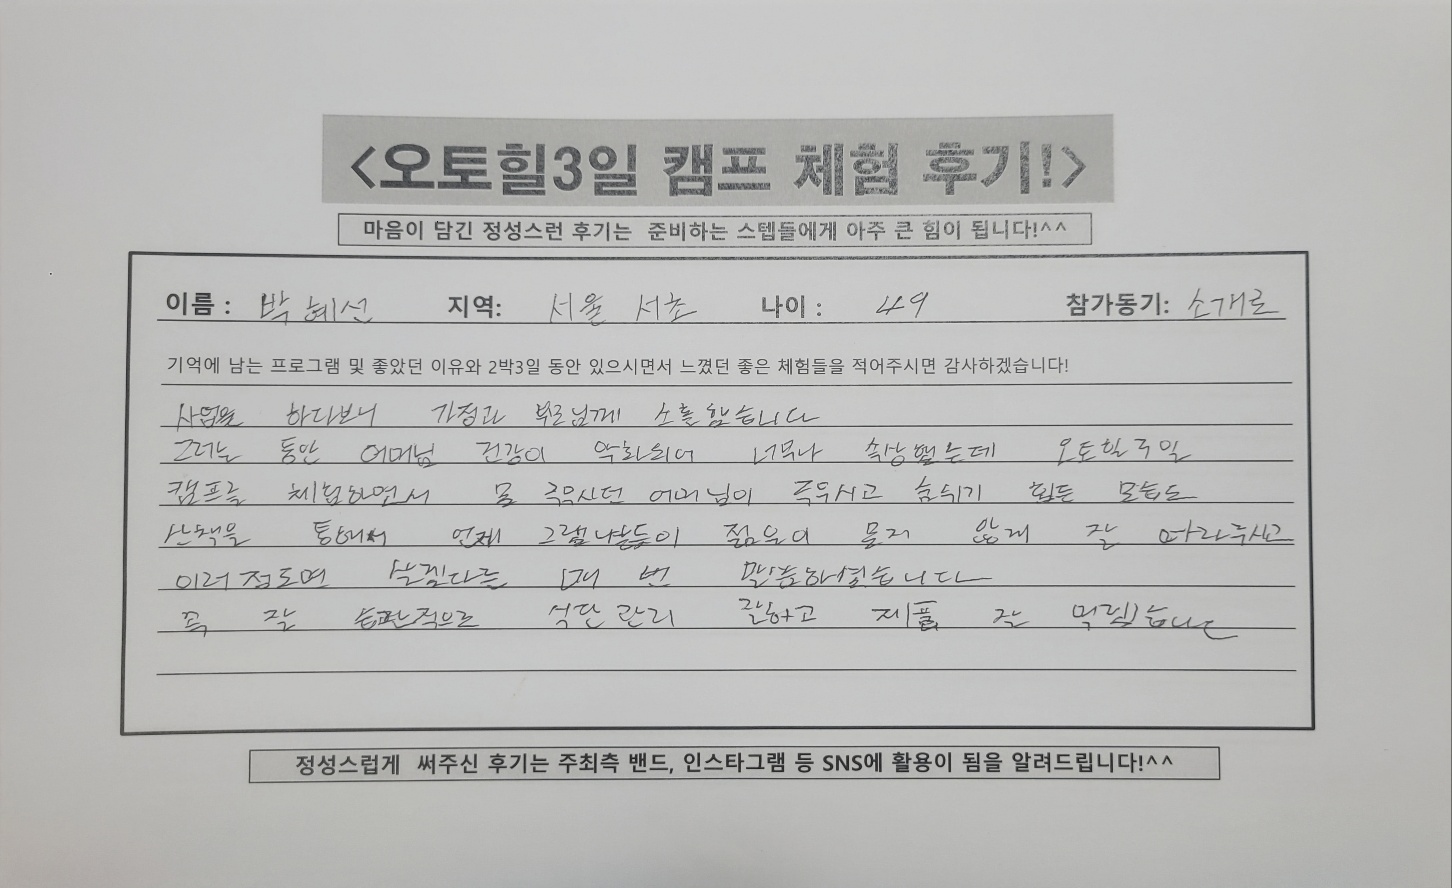 <오토힐3일 캠프 체험 후기!>
마음이 담긴 정성스런 후기는 준비하는 스텝들에게 아주 큰 힘이 됩니다!^^
이름 : 박혜선 지역: 서울 서초 나이 : 49 참가동기: 소개로
기억에 남는 프로그램 및 좋았던 이유와 2박3일 동안 있으시면서 느꼈던 좋은 체험들을 적어주시면 감사하겠습니다!
사업을 하다보니 가정과 부모님께 소홀했습니다
그러는 동안 어머님 건강이 악화되어 너무나 속상했는데 오토힐 3일
캠프를 체험하면서 몸 어머님이 숨쉬기 힘든 모습도
산책을 통해서 언제 그랬냐는듯이 젊은이 못지 않게 잘 따라주시고
이러 정도면 살겠다는 매 번 말씀하셨습니다
꼭 잘 습관적으로 식단 관리 잘하고 제품 잘 먹겠습니다
정성스럽게 써주신 후기는 주최측 밴드, 인스타그램 등 SNS에 활용이 됨을 알려드립니다!^^